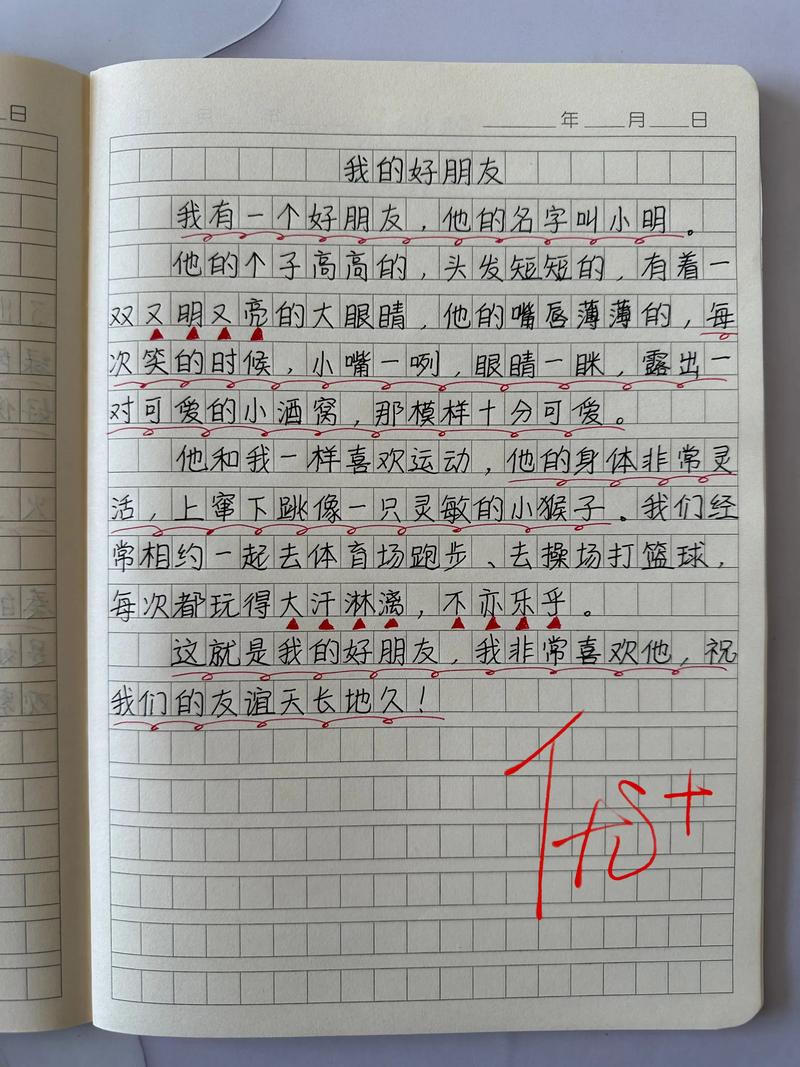 日
年 月 日
我的好朋友
我有一个好朋友，他的名字叫小明。
他的个子高高的，头发短短的，有着一
双又明又亮的大眼睛，他的嘴唇薄薄的，每
次笑的时候，小嘴一咧，眼睛一眯，露出一
对可爱的小酒窝，那模样十分可爱。
他和我一样喜欢运动，他的身体非常灵
活，上窜下跳像一只灵敏的小猴子。我们经
常相约一起去体育场跑步、去操场打篮球，
每次都玩得大汗淋漓，不亦乐乎。
这就是我的好朋友，我非常喜欢他，祝
我们的友谊天长地久！
优+